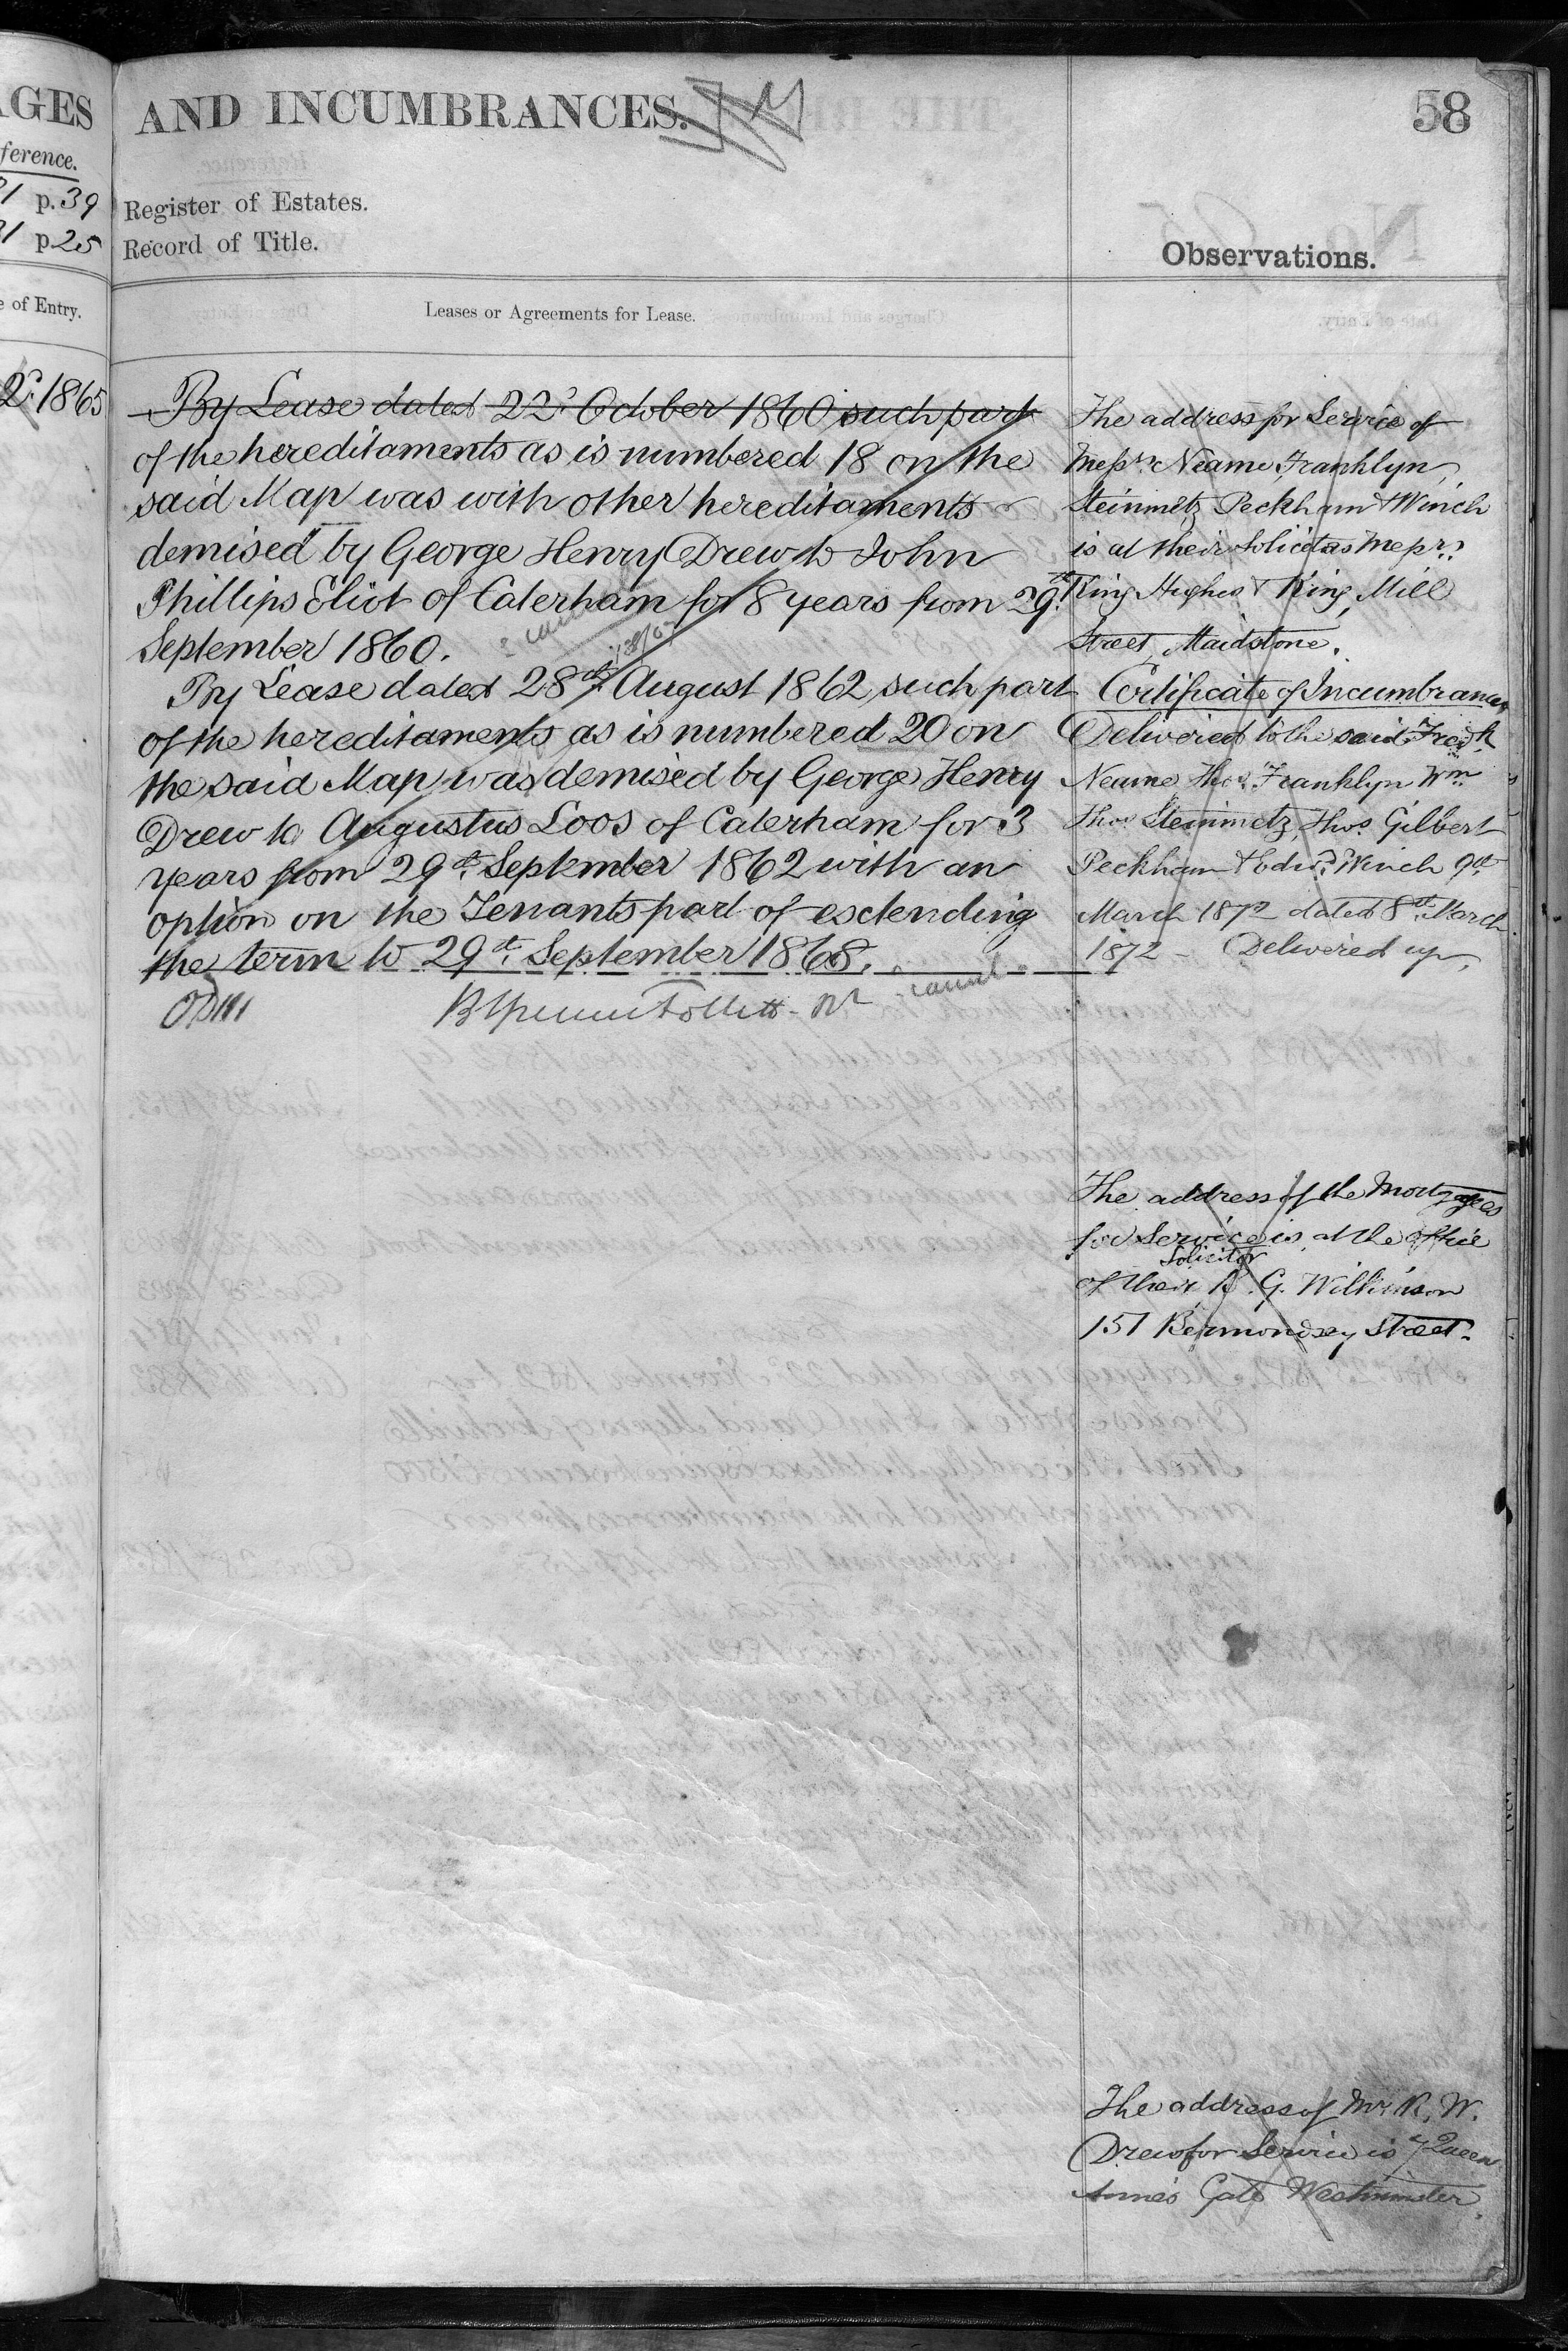 AGES
ference.
p. 39
p 25
e of Entry.
1865
AND INCUMBRANCES.
58
Register of Estates.
Record of Title.
Observations.
Leases or Agreements for Lease.
By Lease dated 22d October 1860 such part
of the hereditaments as is numbered 18 on the
said Map was with other hereditaments
demised by George Henry Drew to John
Phillips Eliot of Caterham for 8 years from 29th
September 1860.
By Lease dated 28th August 1862 such part
of the hereditaments as is numbered 20 on
the said Map was demised by George Henry
Drew to Augustus Loos of Caterham for 3
years from 29th September 1862 with an
option on the Tenants part of extending
the term to 29th September 1868.
cancel
The address for Service of
Messrs. Neame, Franklyn,
Steinmetz Peckham & Winch
is at their Solicitors Messrs.
King Hughes & King, Mill
Street, Maidstone.
Certificate of Incumbrances
Delivered to the said Fredk.
Neame Thos. Franklyn Wm.
Thos. Steinmetz, Thos. Gilbert
Peckham & Edwd. Winch 9th
March 1872 dated 8th March
1872 - Delivered up.
The address of the Mortgagees
for Service is at the office
Solicitor
of their R. G. Wilkinson
151 Bermondsey Street.
The address of Mr. R. W.
Drew for Service is 7 Queen
Anne's Gate Westminster.